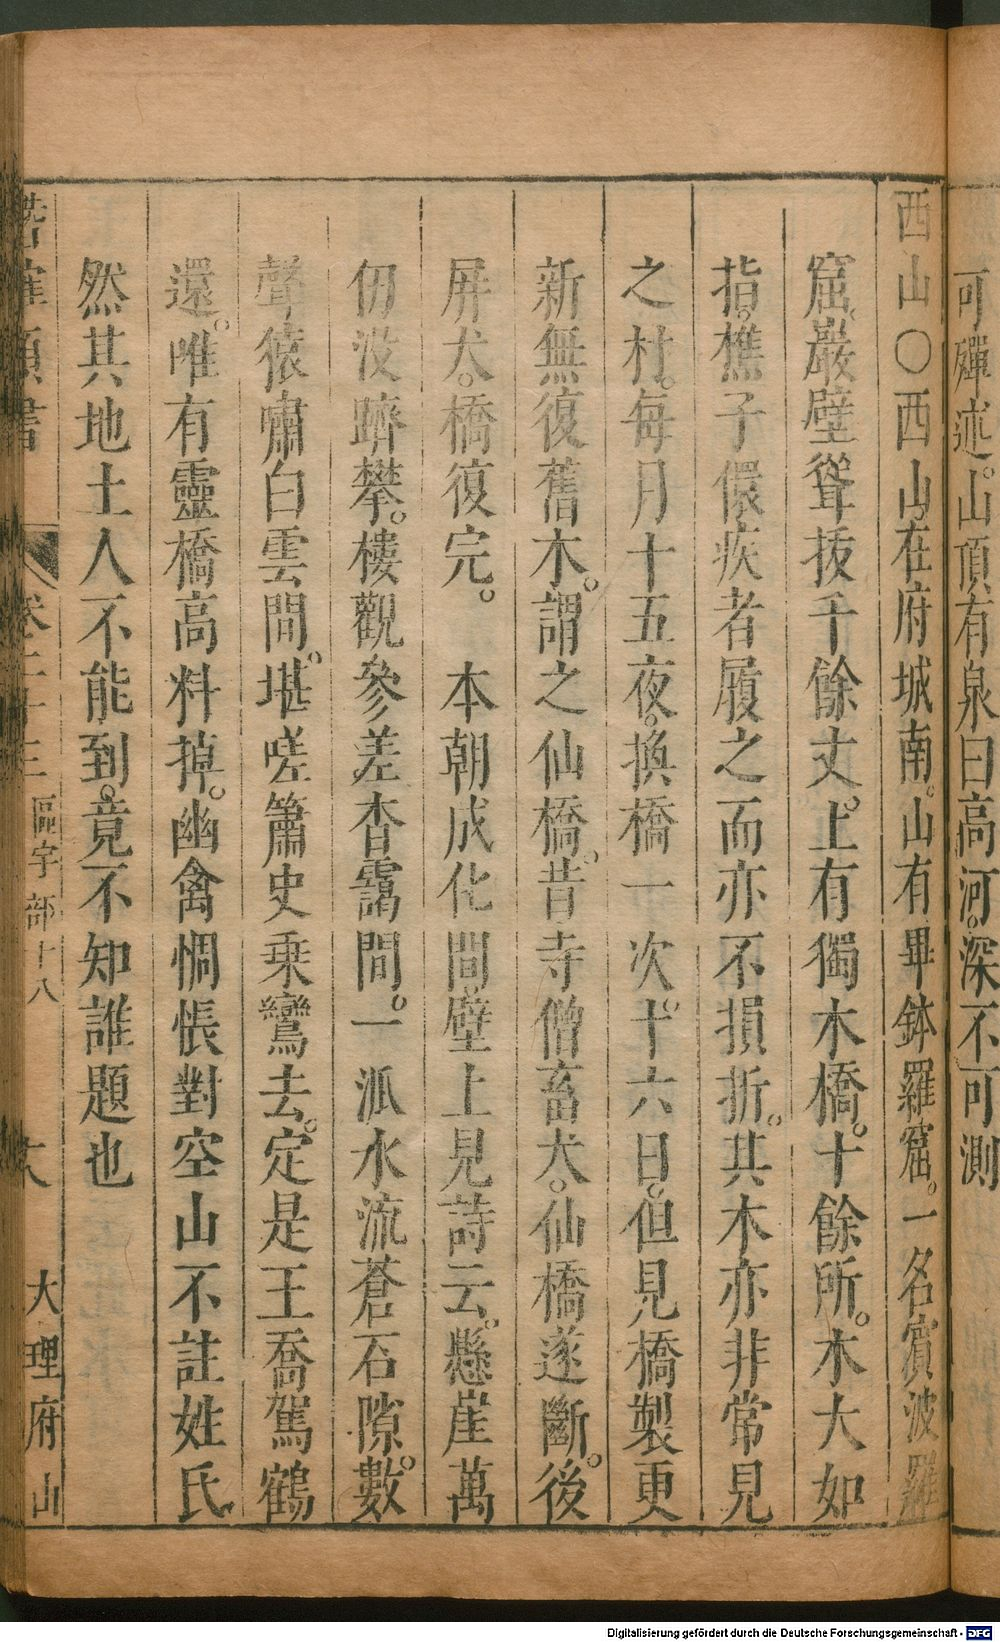 可殫述。山頂有泉曰高河。深不可測
西山〇西山在府城南。山有畢鉢羅窟。一名賓波羅
窟。巖壁聳拔千餘丈。上有獨木橋。十餘所。木大如
指。樵子儇疾者履之而亦不損折。其木亦非常見
之材。每月十五夜。換橋一次。十六日。但見橋製更
新無復舊木。謂之仙橋。昔寺僧畜犬。仙橋遂斷。後
屏犬。橋復完。 本朝成化間。壁上見詩云。懸崖萬
仞沒躋攀。樓觀參差杳靄間。一派水流蒼石隙。數
聲猿嘯白雲間。堪嗟簫史乘鸞去。定是王喬駕鶴
還。唯有靈橋高料掉。幽禽惆悵對空山不註姓氏
然其地土人不能到。竟不知誰題也
潛確類書 卷二十三 區宇部十八 大理府 山
Digitalisierung gefördert durch die Deutsche Forschungsgemeinschaft - DFG